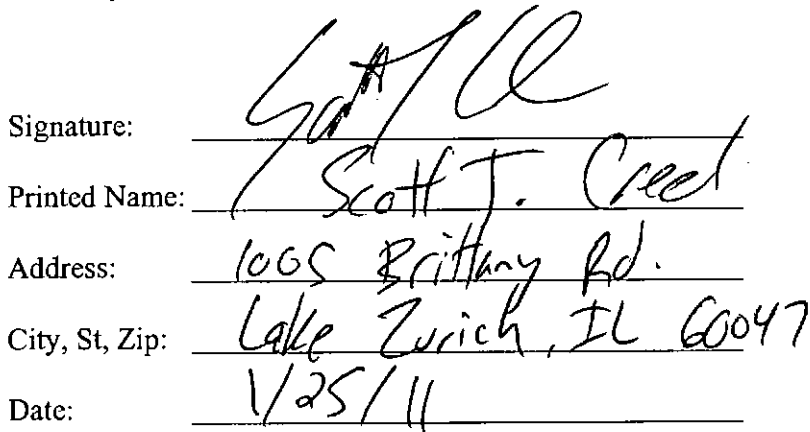 Signature: Scott J Cl
Printed Name: Scott J. Creed
Address: 1005 Brittany Rd.
City, St, Zip: Lake Zurich, IL 60047
Date: 1/25/11